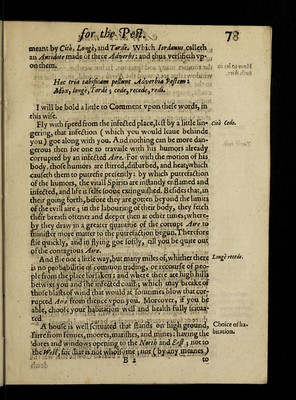 for the Pest. 78
meant by Citò, Longè, and Tardè. Which Iordanus calleth
an Antidote made of three Adverbs: and thus versifieth vp-
on them.
Hæc tria tabificam pellunt Adverbia Pestem:
Mox, longè, Tardè; cede, recede, redi.
I will be bold a little to Comment vpon these words, in
this wise.
Fly with speed from the infected place, lest by a little lin- Citò Cede.
gering, that infection (which you would leave behinde
you) goe along with you. And nothing can be more dan-
gerous then for one to travaile with his humors already
corrupted by an infected Aire. For with the motion of his
body, those humors are stirred, disturbed, and heat; which
causeth them to putrefie presently: by which putrefaction
of the humors, the vitall Spirits are instantly enflamed and
infected, and life it selfe soone extinguished. Besides that, in
their going forth, before they are gotten beyond the limits
of the evill aire; in the labouring of their body, they fetch
their breath oftener and deeper then at other times; where-
by they draw in a greater quantitie of the corrupt Aire to
minister more matter to the putrefaction begun. Therefore
flie quickly, and in flying goe softly, till you be quite out
of the contagious Aire.
And flie not a little way, but many miles of, whither there Longè recede.
is no probabilitie of common trading, or recourse of peo-
ple from the place forsaken: and where there are high hills
betwixt you and the infected coast; which may breake of
those blasts of wind that would at sometimes blow that cor-
rupted Aire from thence vpon you. Moreover, if you be
able, choose your habitation well and health-fully scitua-
ted
A house is well scituated that stands on high ground, Choice of ha-
farre from fennes, moores, marishes, and mines: having the bitation.
dores and windows opening to the North and East; not to
the West, for that is not wholsome; nor (by any meanes)
B 2 to